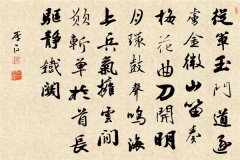 從軍玉門道逐
虜金微山笛奏
梅花曲刀開明
月環鼓聲鳴海
上兵氣擁雲間
願斬單於首長
驅靜鐵關